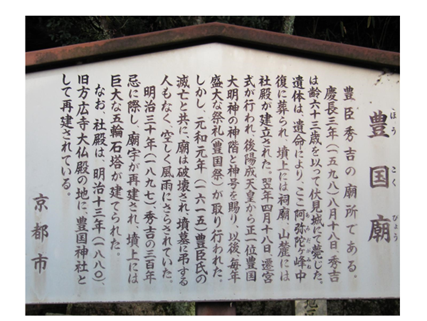 豊国廟
ほうこくびょう
豊臣秀吉の廟所である。
慶長三年(一五九八)八月十八日、秀吉
は齢六十三歳を以って伏見城にて薨じた。
遺体は、遺命により、ここ阿弥陀ヶ峰中
復に葬られ、墳上には祠廟、山麓には
社殿が建立された。翌年四月十八日、遷宮
式が行われ、後陽成天皇から正一位豊国
大明神の神階と神号を賜り、以後、毎年
盛大な祭礼(豊国祭)が取り行われた。
しかし、元和元年(一六一五)豊臣氏の
滅亡と共に、廟は破壊され、墳墓に弔する
人もなく、空しく風雨にさらされていた。
明治三十年(一八九七)秀吉の三百年
忌に際し、廟宇が再建され、墳上には
巨大な五輪石塔が建てられた。
なお、社殿は、明治十三年(一八八〇)、
旧方広寺大仏殿の地に、豊国神社と
して再建されている。
京都市